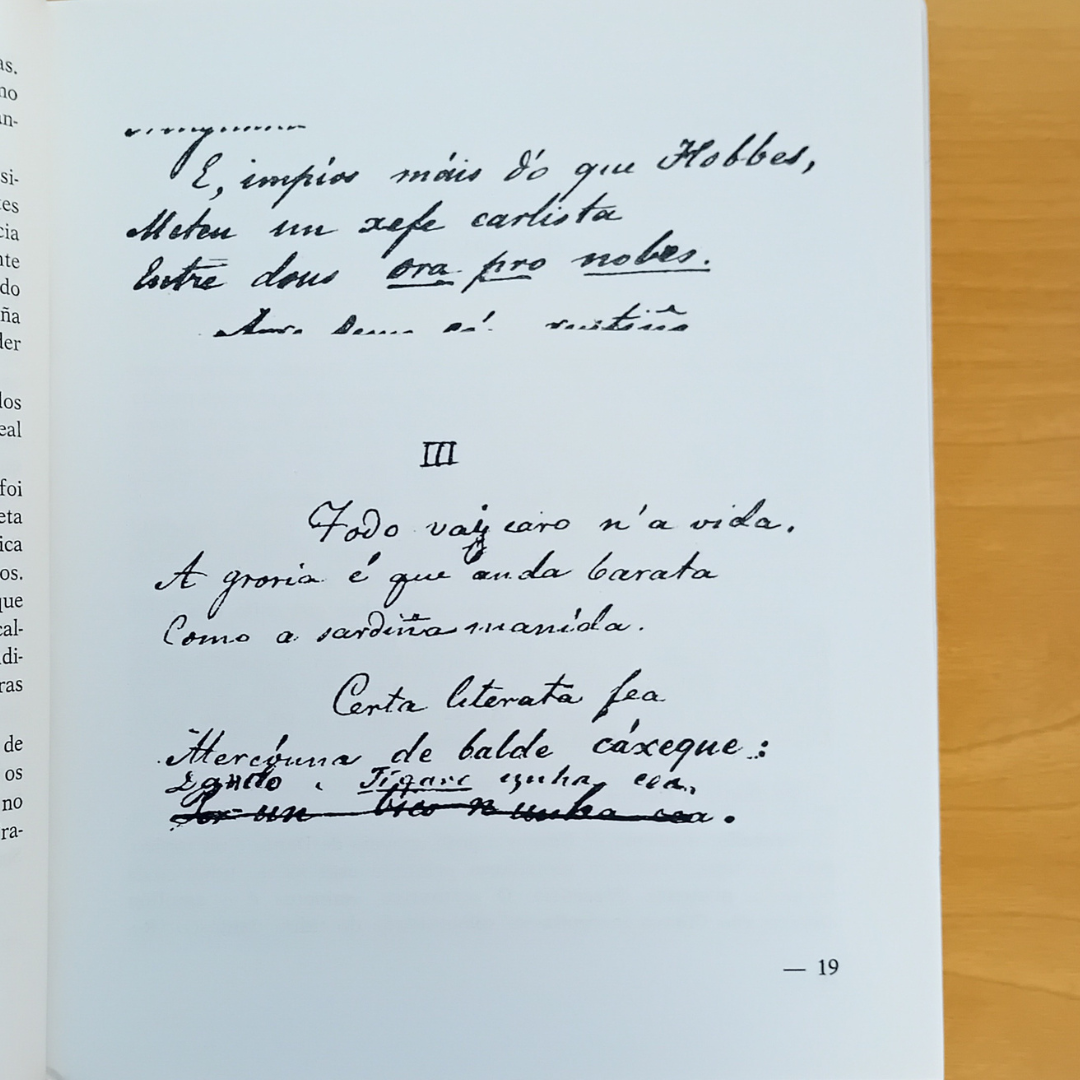 as.
no
an-
si-
tes
cia
nte
do
ña
der
los
eal
foi
eta
ica
os.
que
cal-
di-
ras
de
os
no
ra-
E, impíos máis d'o que Hobbes,
Meteu un xefe carlista
Entre dous ora pro nobes.
III
Todo vai caro n'a vida.
A groria é que anda barata
Como a sardiña manida.
Certa literata fea
Mercóuna de balde cáxeque:
Fígaro cunha cea.
Por un bico n'unha cea.
— 19